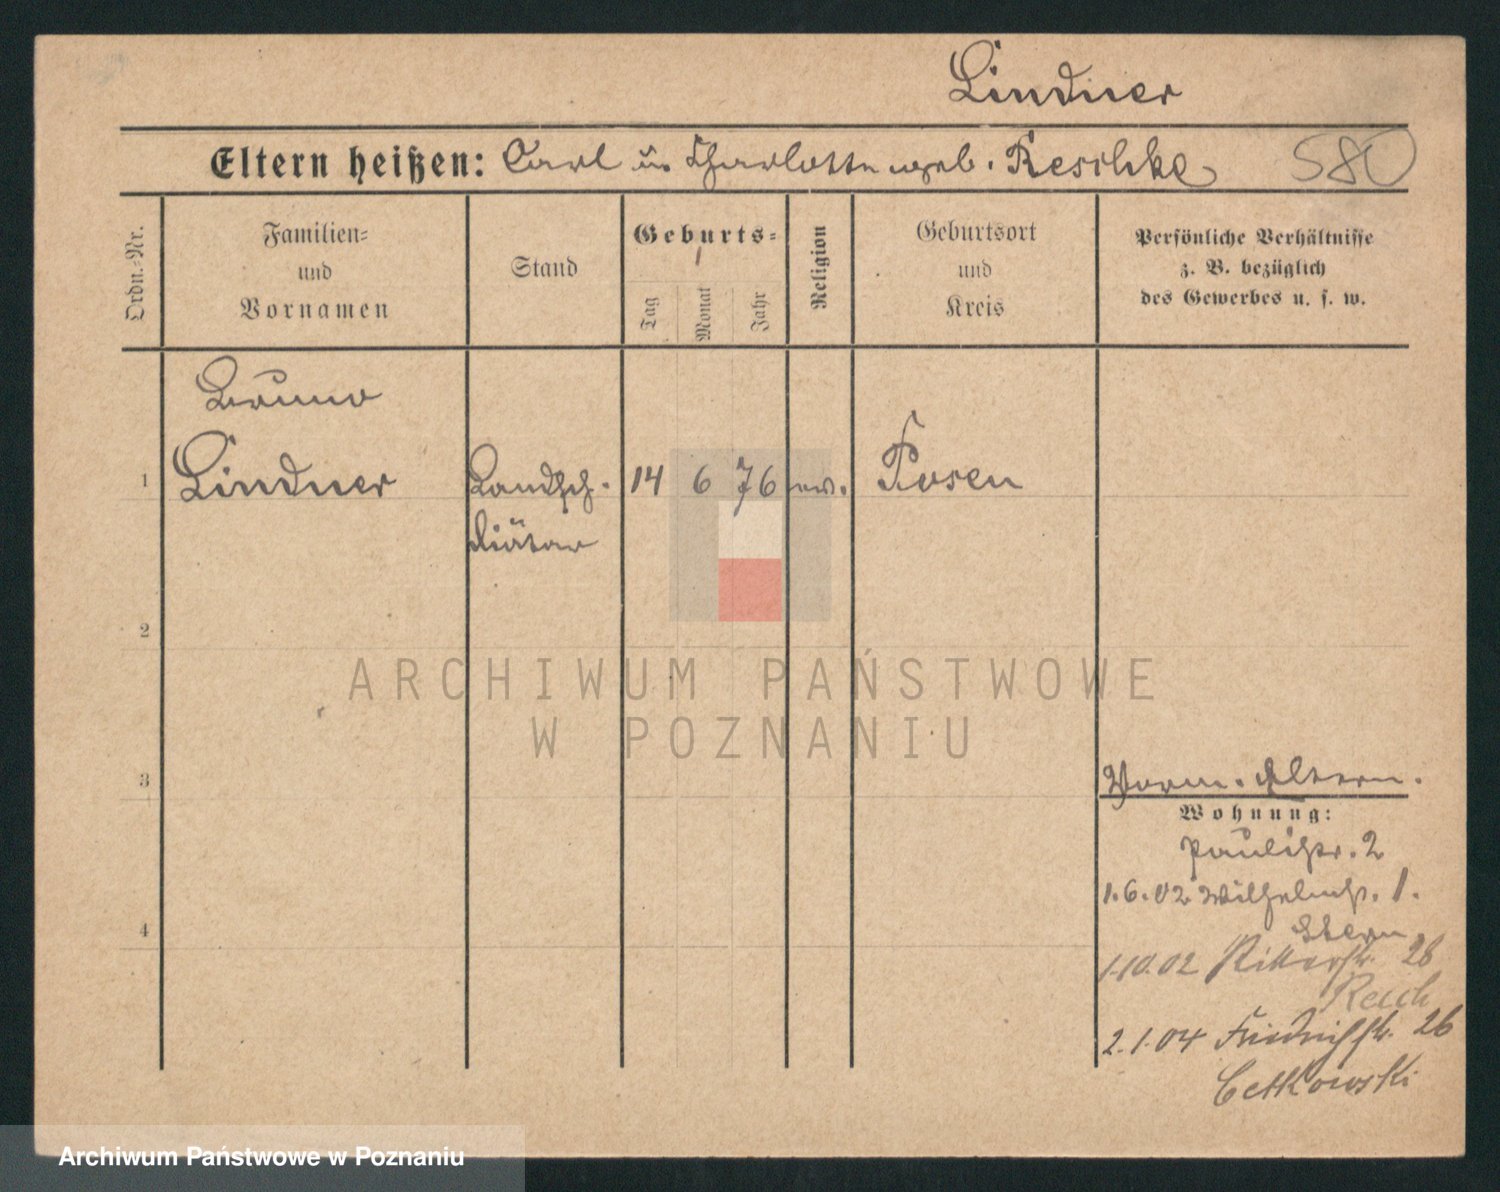 Lindner
Eltern heißen: Carl u. Charlotte geb. Reschke
580
Ordn.-Nr.
Familien-
und
Vornamen
Stand
Geburts-
Tag
Monat
Jahr
Religion
Geburtsort
und
Kreis
Persönliche Verhältnisse
z. B. bezüglich
des Gewerbes u. s. w.
Bruno
1 Lindner Landsch. 14 6 76 ev. Posen
diätar
2
3
Eltern.
Wohnung:
Paulistr. 2
1.6.02 Wilhelmstr. 1.
Stern
4
1.10.02 Ritterstr. 28
Reich
2.1.04 Friedrichstr. 26
Cetkowski
ARCHIWUM PAŃSTWOWE
W POZNANIU
Archiwum Państwowe w Poznaniu